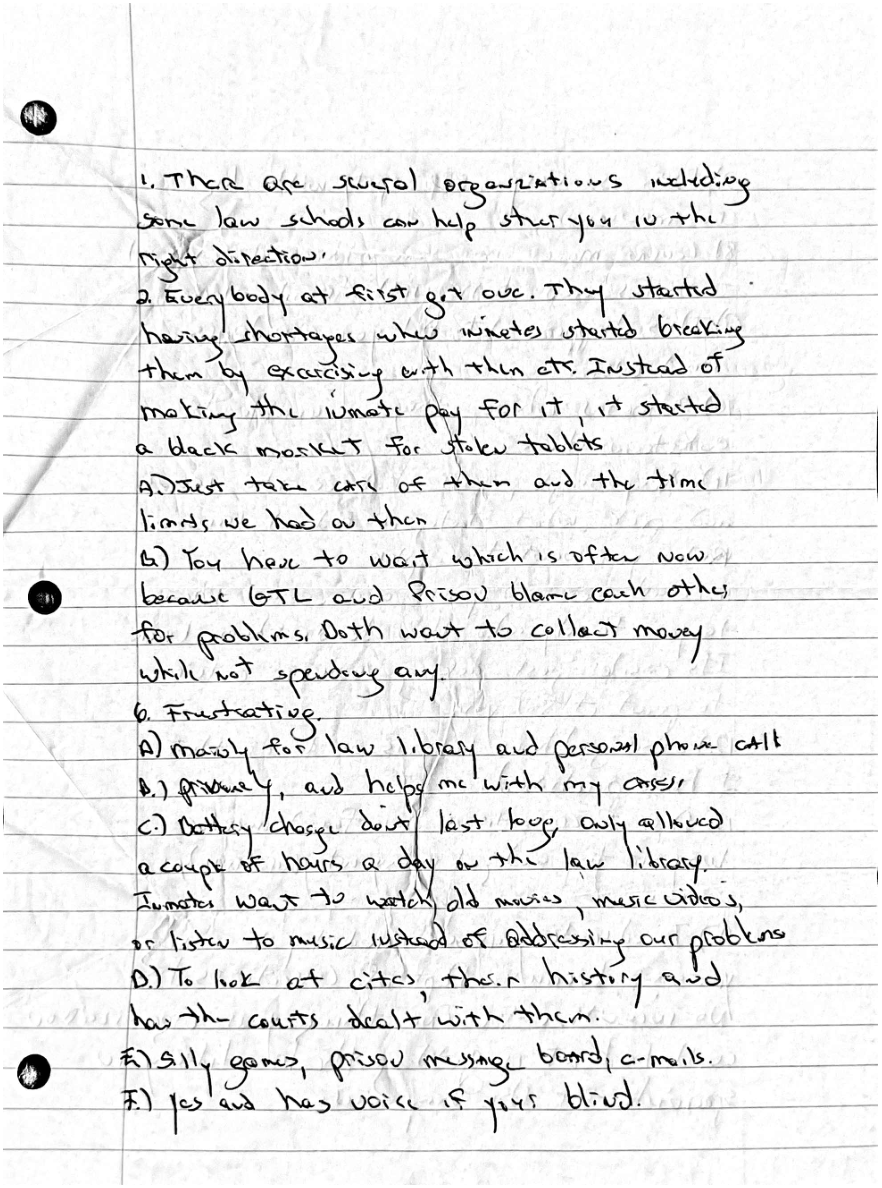 1. There are several organziations including
some law schools can help steer you in the
right direction.
2. Everybody at first got one. They started
having shortages when inmates started breaking
them by excercising with them etc. Instead of
making the inmate pay for it, it started
a black market for stolen tablets
A.) Just take care of them and the time
limits we had on them
B) You have to wait which is often now
because GTL and Prison blame each other
for problems. Both want to collect money
while not spending any.
6. Frustrating.
A) mainly for law library and personal phone call
B.) primarely, and helps me with my cases.
C.) Battery charge dont last long, only allowed
a couple of hours a day on the law library.
Inmates want to watch old movies, music video's,
or listen to music instead of addressing our problems
D.) To look at cites, their history and
has the courts dealt with them.
E.) Silly games, prison message board, e-mails.
F.) yes and has voice if your blind.